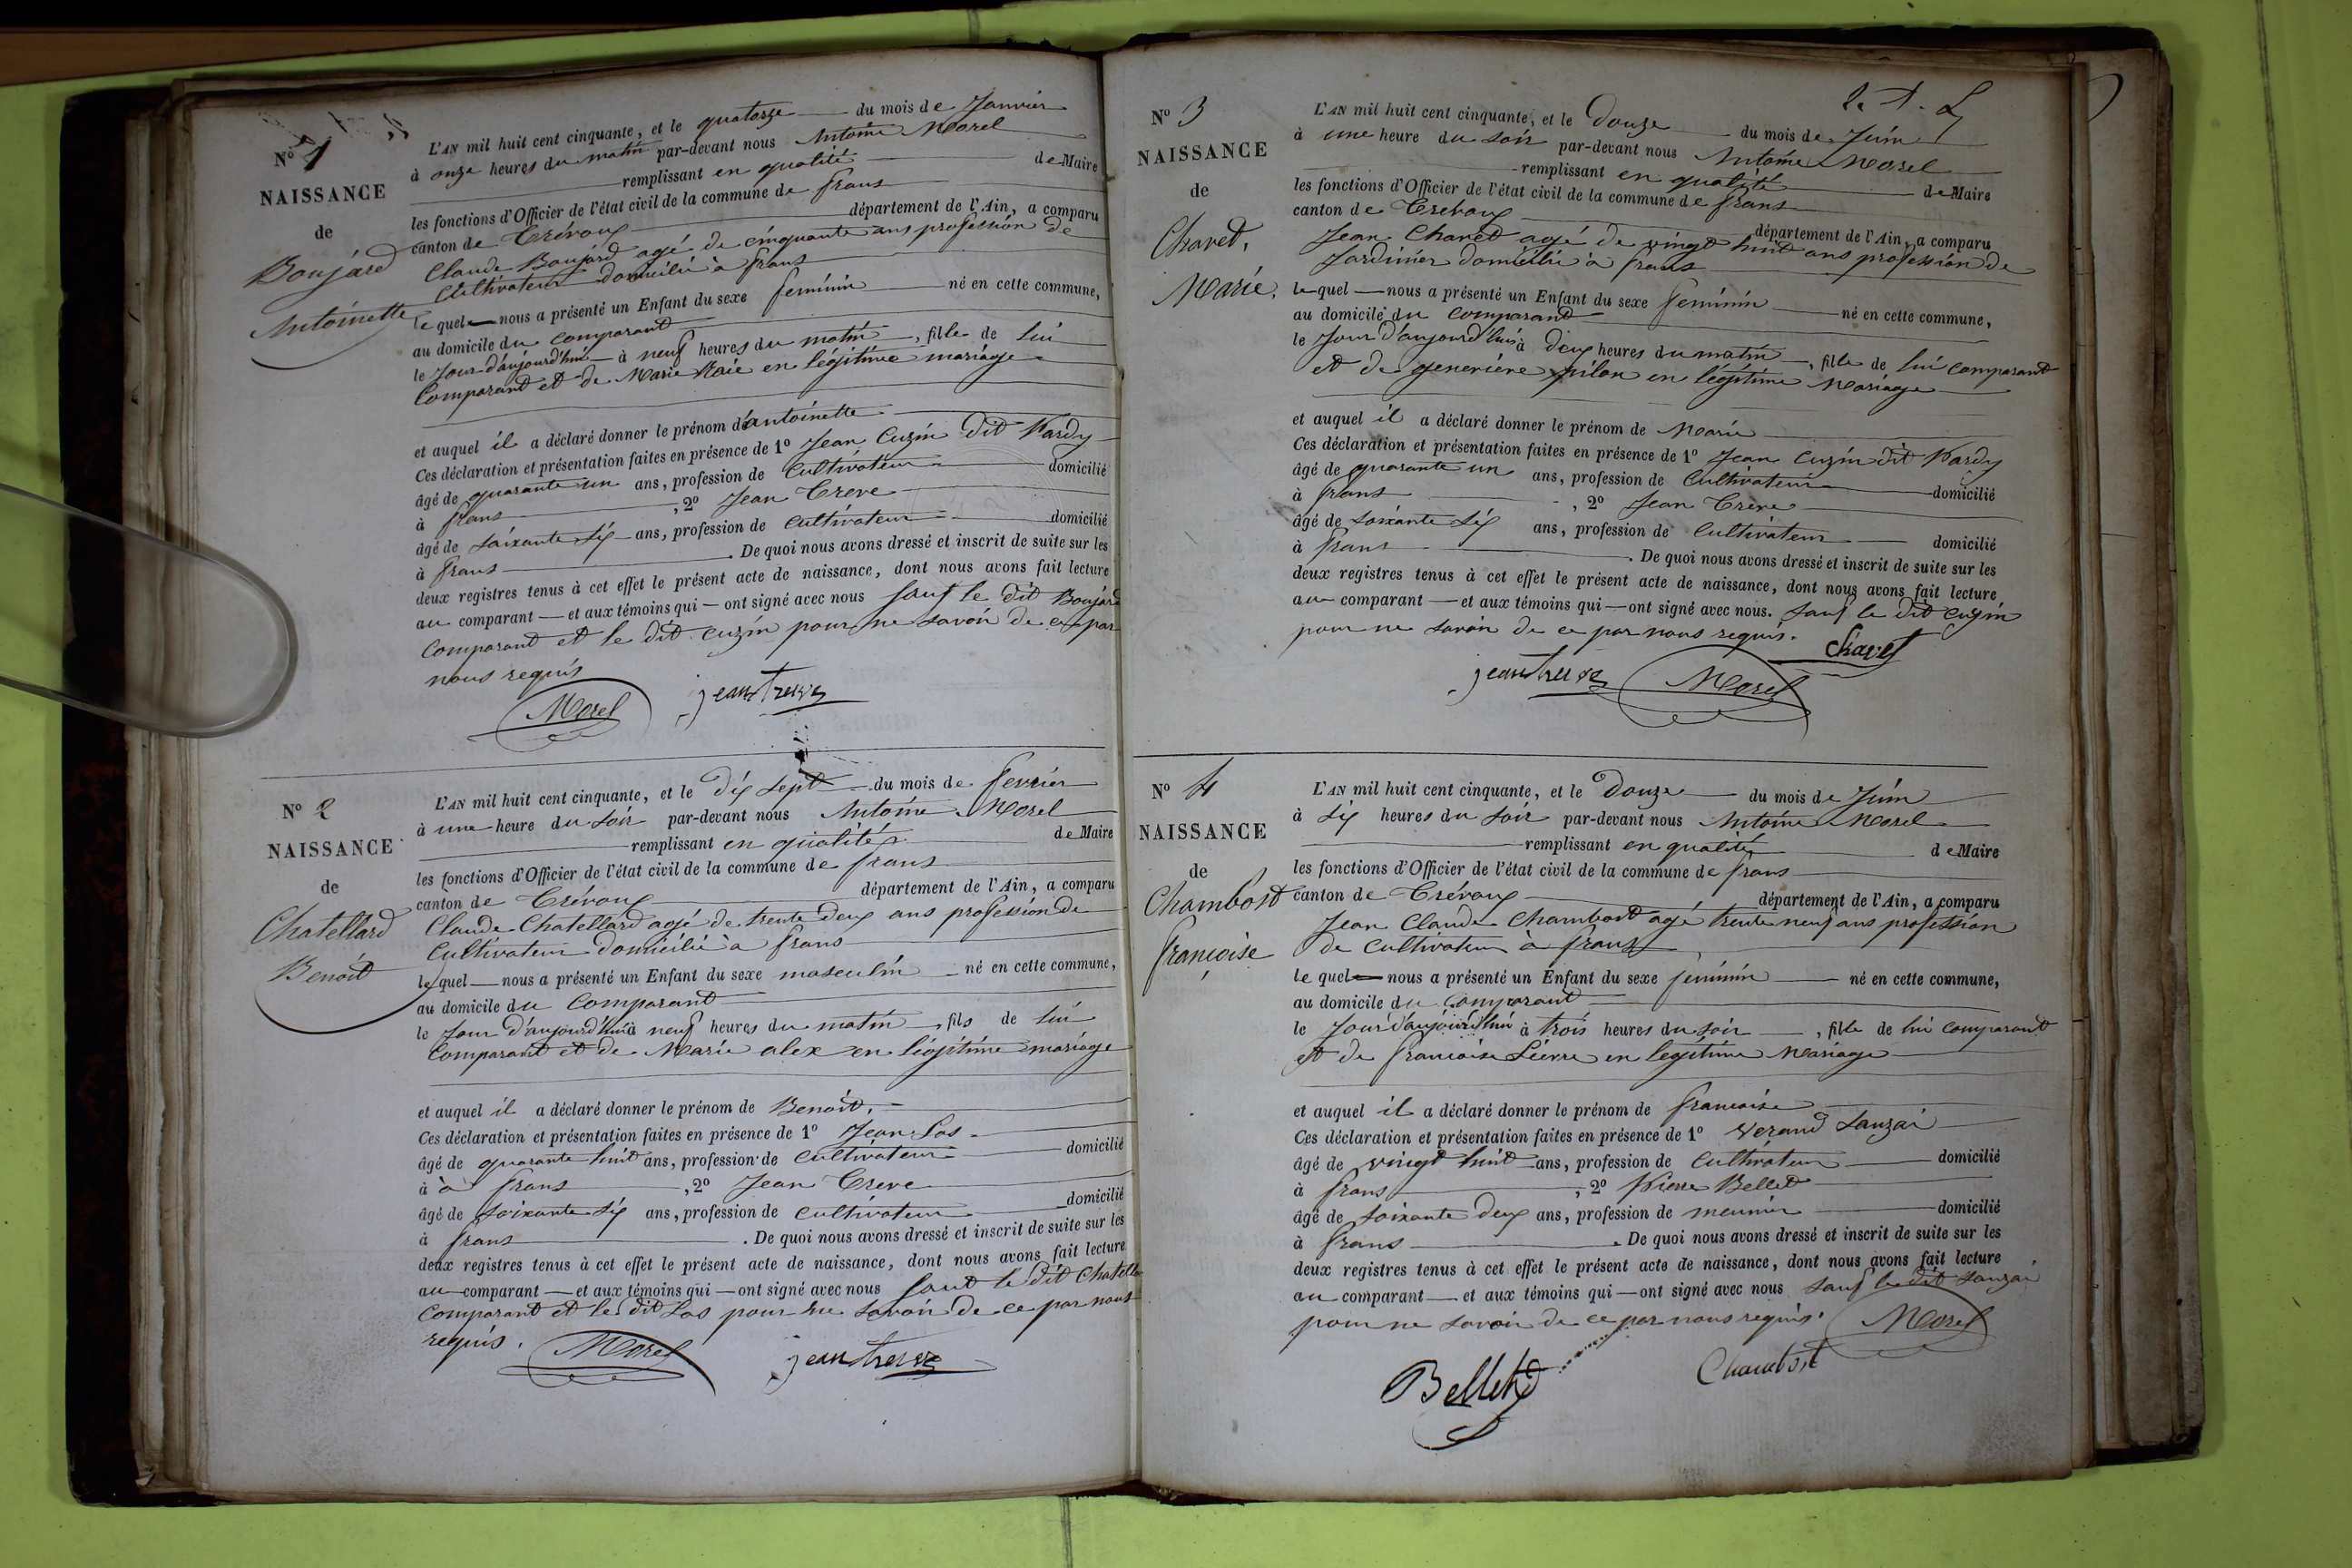 Nº 1
NAISSANCE
de
Boujard
Antoinette
L'AN mil huit cent cinquante, et le quatorze du mois de Janvier
à onze heures du matin par-devant nous Antoine Morel
remplissant en qualité de Maire
les fonctions d'Officier de l'état civil de la commune de frans
canton de Trévoux département de l'Ain, a comparu
Claude Boujard agé de cinquante ans profession de
Cultivateur domicilié à frans
le quel nous a présenté un Enfant du sexe feminin né en cette commune,
au domicile du comparant
le Jour d'aujourd'hui à neuf heures du matin, fille de lui
Comparant et de Marie en légitime mariage
et auquel il a déclaré donner le prénom d'antoinette
Ces déclaration et présentation faites en présence de 1º Jean Cuzin dit Pardy
âgé de quarante un ans, profession de Cultivateur domicilié
à frans, 2º Jean Treve
âgé de soixante six ans, profession de cultivateur domicilié
à frans. De quoi nous avons dressé et inscrit de suite sur les
deux registres tenus à cet effet le présent acte de naissance, dont nous avons fait lecture
au comparant et aux témoins qui ont signé avec nous sauf le dit Boujard
Comparant et le dit cuzin pour ne savoir de ce par
nous requis
Morel jean treve
Nº 2
NAISSANCE
de
Chatellard
Benoit
L'AN mil huit cent cinquante, et le dix sept du mois de fevrier
à une heure du soir par-devant nous Antoine Morel
remplissant en qualité de Maire
les fonctions d'Officier de l'état civil de la commune de frans
canton de Trévoux département de l'Ain, a comparu
Claude Chatellard agé de trente deux ans profession de
Cultivateur domicilié à frans
le quel nous a présenté un Enfant du sexe masculin né en cette commune,
au domicile du Comparant
le Jour d'aujourd'hui à neuf heures du matin, fils de lui
Comparant et de Marie alex en légitime mariage
et auquel il a déclaré donner le prénom de Benoit.
Ces déclaration et présentation faites en présence de 1º Jean Sos
âgé de quarante huit ans, profession de Cultivateur domicilié
à à frans, 2º Jean Treve
âgé de soixante six ans, profession de cultivateur domicilié
à frans. De quoi nous avons dressé et inscrit de suite sur les
deux registres tenus à cet effet le présent acte de naissance, dont nous avons fait lecture
au comparant et aux témoins qui ont signé avec nous sauf le dit Chatella
Comparant et le dit Sos pour ne savoir de ce par nous
requis.
Morel jean treve
Nº 3
NAISSANCE
de
Chavet,
Marie,
L'AN mil huit cent cinquante, et le Douze du mois de Juin
à une heure du soir par-devant nous Antoine Morel
remplissant en qualité de Maire
les fonctions d'Officier de l'état civil de la commune de frans
canton de Trevoux département de l'Ain, a comparu
Jean Chavet agé de vingt huit ans profession de
Jardinier domicilié à frans
le quel nous a présenté un Enfant du sexe feminin né en cette commune,
au domicile du comparant
le Jour d'aujourd'hui à deux heures du matin, fille de lui comparant
et de genevieve pilon en légitime Mariage
et auquel il a déclaré donner le prénom de Marie
Ces déclaration et présentation faites en présence de 1º Jean cuzin dit Pardy
âgé de quarante un ans, profession de Cultivateur domicilié
à frans, 2º Jean Treve
âgé de soixante six ans, profession de Cultivateur domicilié
à frans. De quoi nous avons dressé et inscrit de suite sur les
deux registres tenus à cet effet le présent acte de naissance, dont nous avons fait lecture
au comparant et aux témoins qui ont signé avec nous. Sauf le dit cuzin
pour ne savoir de ce par nous requis.
Chavet
jean treve Morel
Nº 4
NAISSANCE
de
Chambost
françoise
L'AN mil huit cent cinquante, et le Douze du mois de Juin
à six heures du soir par-devant nous Antoine Morel
remplissant en qualité de Maire
les fonctions d'Officier de l'état civil de la commune de frans
canton de Trévoux département de l'Ain, a comparu
Jean Claude Chambost agé trente neuf ans profession
de cultivateur à frans
le quel nous a présenté un Enfant du sexe feminin né en cette commune,
au domicile du comparant
le Jour d'aujourd'hui à trois heures du soir, fille de lui comparant
et de francoise Liévre en legitime Mariage
et auquel il a déclaré donner le prénom de francoise
Ces déclaration et présentation faites en présence de 1º Verand Sauzai
âgé de vingt huit ans, profession de Cultivateur domicilié
à frans, 2º Pierre Bellet
âgé de soixante deux ans, profession de meunier domicilié
à frans. De quoi nous avons dressé et inscrit de suite sur les
deux registres tenus à cet effet le présent acte de naissance, dont nous avons fait lecture
au comparant et aux témoins qui ont signé avec nous sauf le dit Sauzai
pour ne savoir de ce par nous requis. Morel
Bellet Chambost